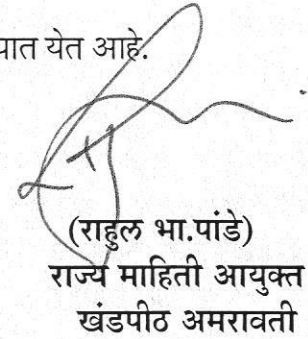 यात येत आहे.
(राहुल भा.पांडे)
राज्य माहिती आयुक्त
खंडपीठ अमरावती